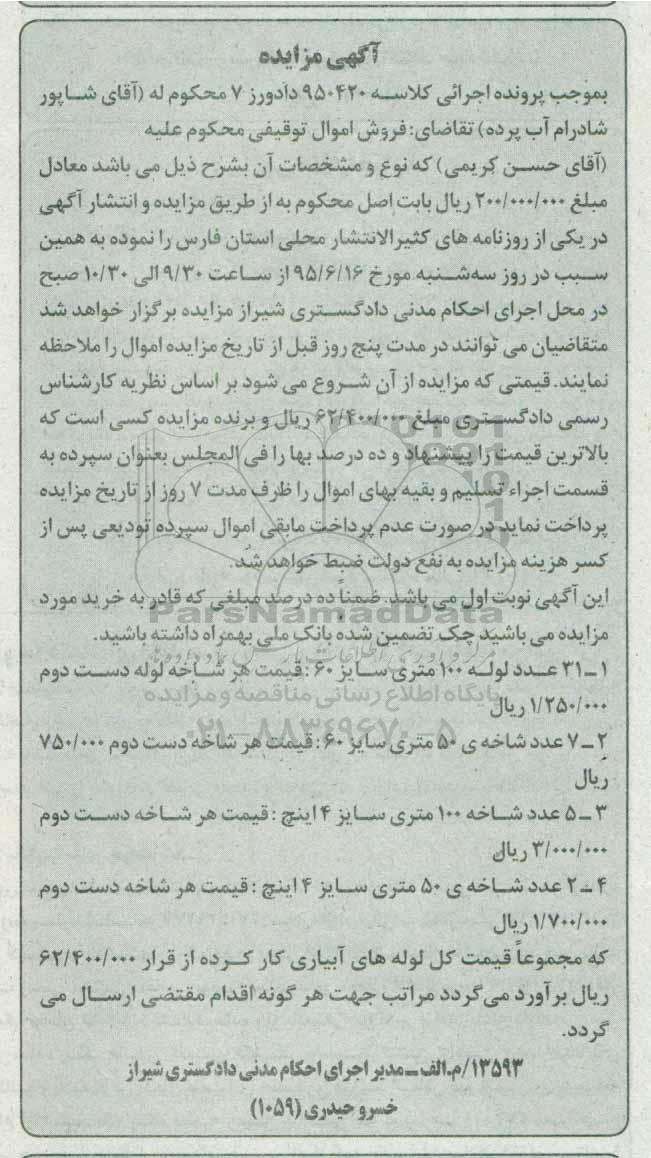 آگهی مزایده
بموجب پرونده اجرائی کلاسه ۹۵۰۴۲۰ دادورز ۷ محکوم له (آقای شاپور
شادرام آب پرده) تقاضای: فروش اموال توقیفی محکوم علیه
(آقای حسن کریمی) که نوع و مشخصات آن بشرح ذیل می باشد معادل
مبلغ ۲۰۰/۰۰۰/۰۰۰ ریال بابت اصل محکوم به از طریق مزایده و انتشار آگهی
در یکی از روزنامه های کثیرالانتشار محلی استان فارس را نموده به همین
سبب در روز سه‌شنبه مورخ ۹۵/۶/۱۶ از ساعت ۹/۳۰ الی ۱۰/۳۰ صبح
در محل اجرای احکام مدنی دادگستری شیراز مزایده برگزار خواهد شد
متقاضیان می توانند در مدت پنج روز قبل از تاریخ مزایده اموال را ملاحظه
نمایند. قیمتی که مزایده از آن شروع می شود بر اساس نظریه کارشناس
رسمی دادگستری مبلغ ۶۲/۴۰۰/۰۰۰ ریال و برنده مزایده کسی است که
بالاترین قیمت را پیشنهاد و ده درصد بها را فی المجلس بعنوان سپرده به
قسمت اجراء تسلیم و بقیه بهای اموال را ظرف مدت ۷ روز از تاریخ مزایده
پرداخت نماید در صورت عدم پرداخت مابقی اموال سپرده تودیعی پس از
کسر هزینه مزایده به نفع دولت ضبط خواهد شد.
این آگهی نوبت اول می باشد. ضمناً ده درصد مبلغی که قادر به خرید مورد
ParsNamadData
مزایده می باشید چک تضمین شده بانک ملی بهمراه داشته باشید.
۱ ـ ۳۱ عدد لوله ۱۰۰ متری سایز ۶۰ : قیمت هر شاخه لوله دست دوم
پایگاه اطلاع رسانی مناقصه و مزایده
۱/۲۵۰/۰۰۰ ریال
۰۲۱-۸۸۳۴۹۶۷۰-۵
۲ ـ ۷ عدد شاخه ی ۵۰ متری سایز ۶۰ : قیمت هر شاخه دست دوم ۷۵۰/۰۰۰
ریال
۳ ـ ۵ عدد شاخه ۱۰۰ متری سایز ۴ اینچ : قیمت هر شاخه دست دوم
۳/۰۰۰/۰۰۰ ریال
۴ ـ ۲ عدد شاخه ی ۵۰ متری سایز ۴ اینچ : قیمت هر شاخه دست دوم
۱/۷۰۰/۰۰۰ ریال
که مجموعاً قیمت کل لوله های آبیاری کار کرده از قرار ۶۲/۴۰۰/۰۰۰
ریال برآورد می‌گردد مراتب جهت هر گونه اقدام مقتضی ارسال می
گردد.
۱۳۵۹۳/م.الف ـ مدیر اجرای احکام مدنی دادگستری شیراز
خسرو حیدری (۱۰۵۹)